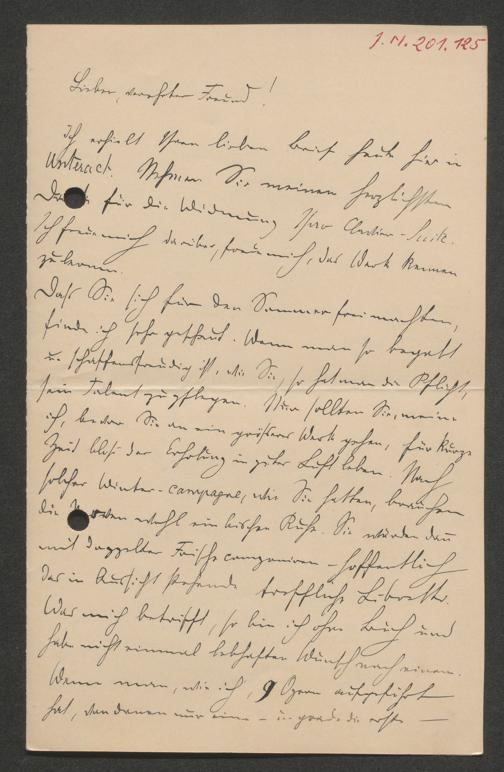 J. N. 201.125
Lieber, verehrter Freund!
Ich erhielt Ihren lieben Brief heute hier in
Unterach. Nehmen Sie meinen herzlichsten
Dank für die Widmung Ihrer Clavier-Suite.
Ich freue mich darüber, freue mich, das Werk kennen
zu lernen.
Dass Sie sich für den Sommer frei machten,
finde ich sehr gescheut. Wenn man so begabt
u. schaffensfreudig ist, wie Sie, so hat man die Pflicht,
sein Talent zu pflegen. Nur sollten Sie, meine
ich, bevor Sie an ein größeres Werk gehen, für kurze
Zeit blos der Erholung in guter Luft leben. Nach
solcher Winter-campagne, wie Sie hatten, brauchen
die Nerven wohl ein bischen Ruhe. Sie würden dann
mit doppelter Frische componiren – hoffentlich
das in Aussicht stehende treffliche Libretto.
Was mich betrifft, so bin ich ohne Buch und
habe nicht einmal lebhaften Wunsch nach einem.
Wenn man, wie ich, 9 Opern aufgeführt
hat, von denen nur eine – u. grade die erste –